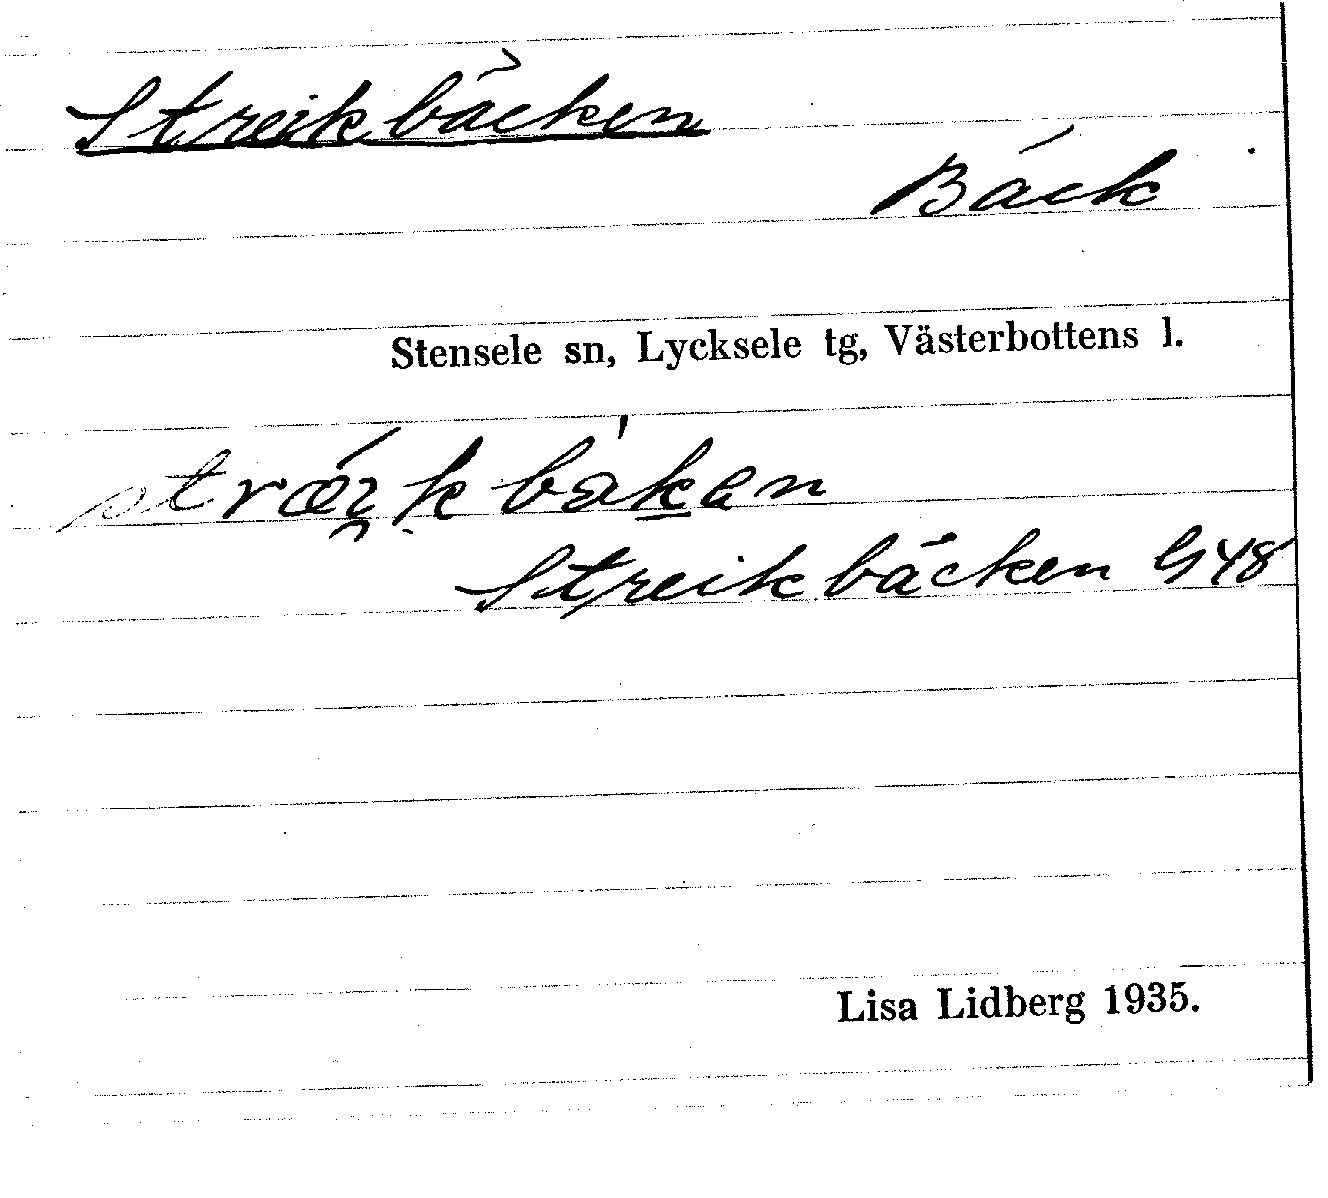 Streikbäcken
Bäck
Stensele sn, Lycksele tg, Västerbottens l.
Streikbäcken G48
Lisa Lidberg 1935.